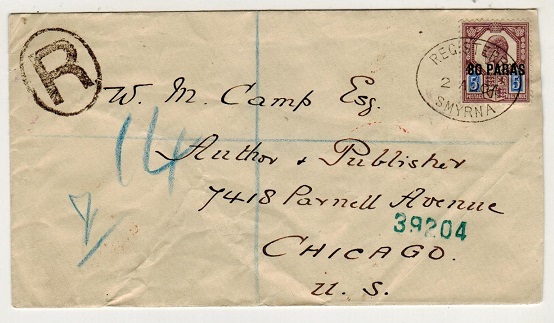 R
REGISTERED
80 PARAS
5 5
SMYRNA
W. M. Camp Esq.
14
Author & Publisher
7418 Parnell Avenue
39204
CHICAGO.
U. S.